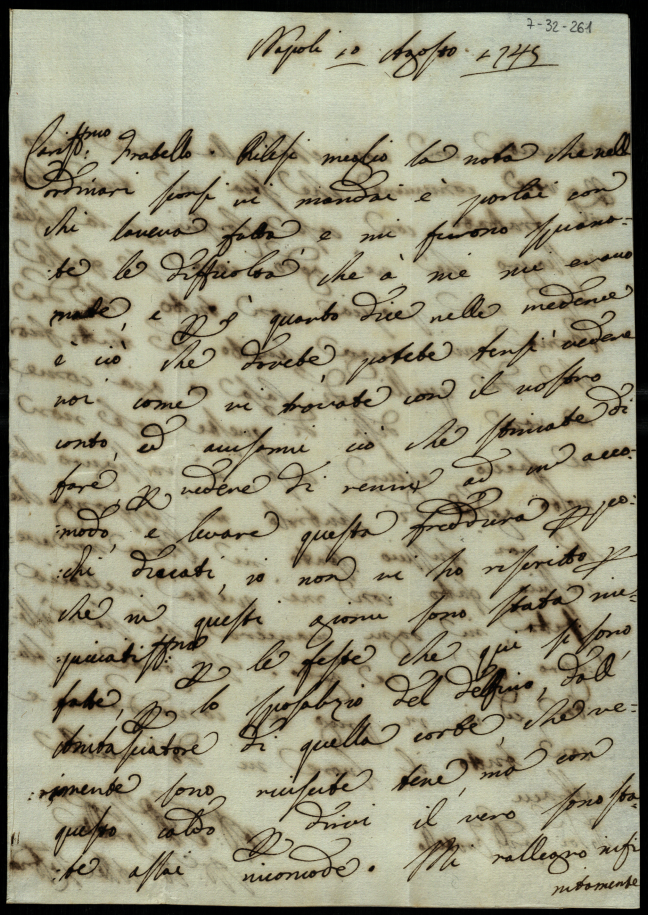 7-32-261
Napoli 10 Agosto 1745
Cariss:mo Fratello. Rilessi meglio la nota che nell
ordinari scorsi vi mandai è parlai con
chi laveva fatta, e mi furono spiana-
:te le difficoltà, che à me mi erano
nate, e p quanto dice nelle medeme
è ciò che dovete, potete vedere
voi come vi trovate con il vostro
conto, ed avisarmi ciò che stimate di
fare, p vedere di venire ad un acco-
:modo, e levare questa freddura p po-
:chi ducati, io non vi ho risposto p
che in questi giorni sono stata in-
quietatiss:ma p le feste che qui si sono
fatte, p lo sposalizio del delfino, dall
Ambasciatore di quella corte, che ve-
:ramente sono riuscite bene, mà con
questo caldo p dirvi il vero sono sta-
:te assai incomode. Mi rallegro infi
nitamente